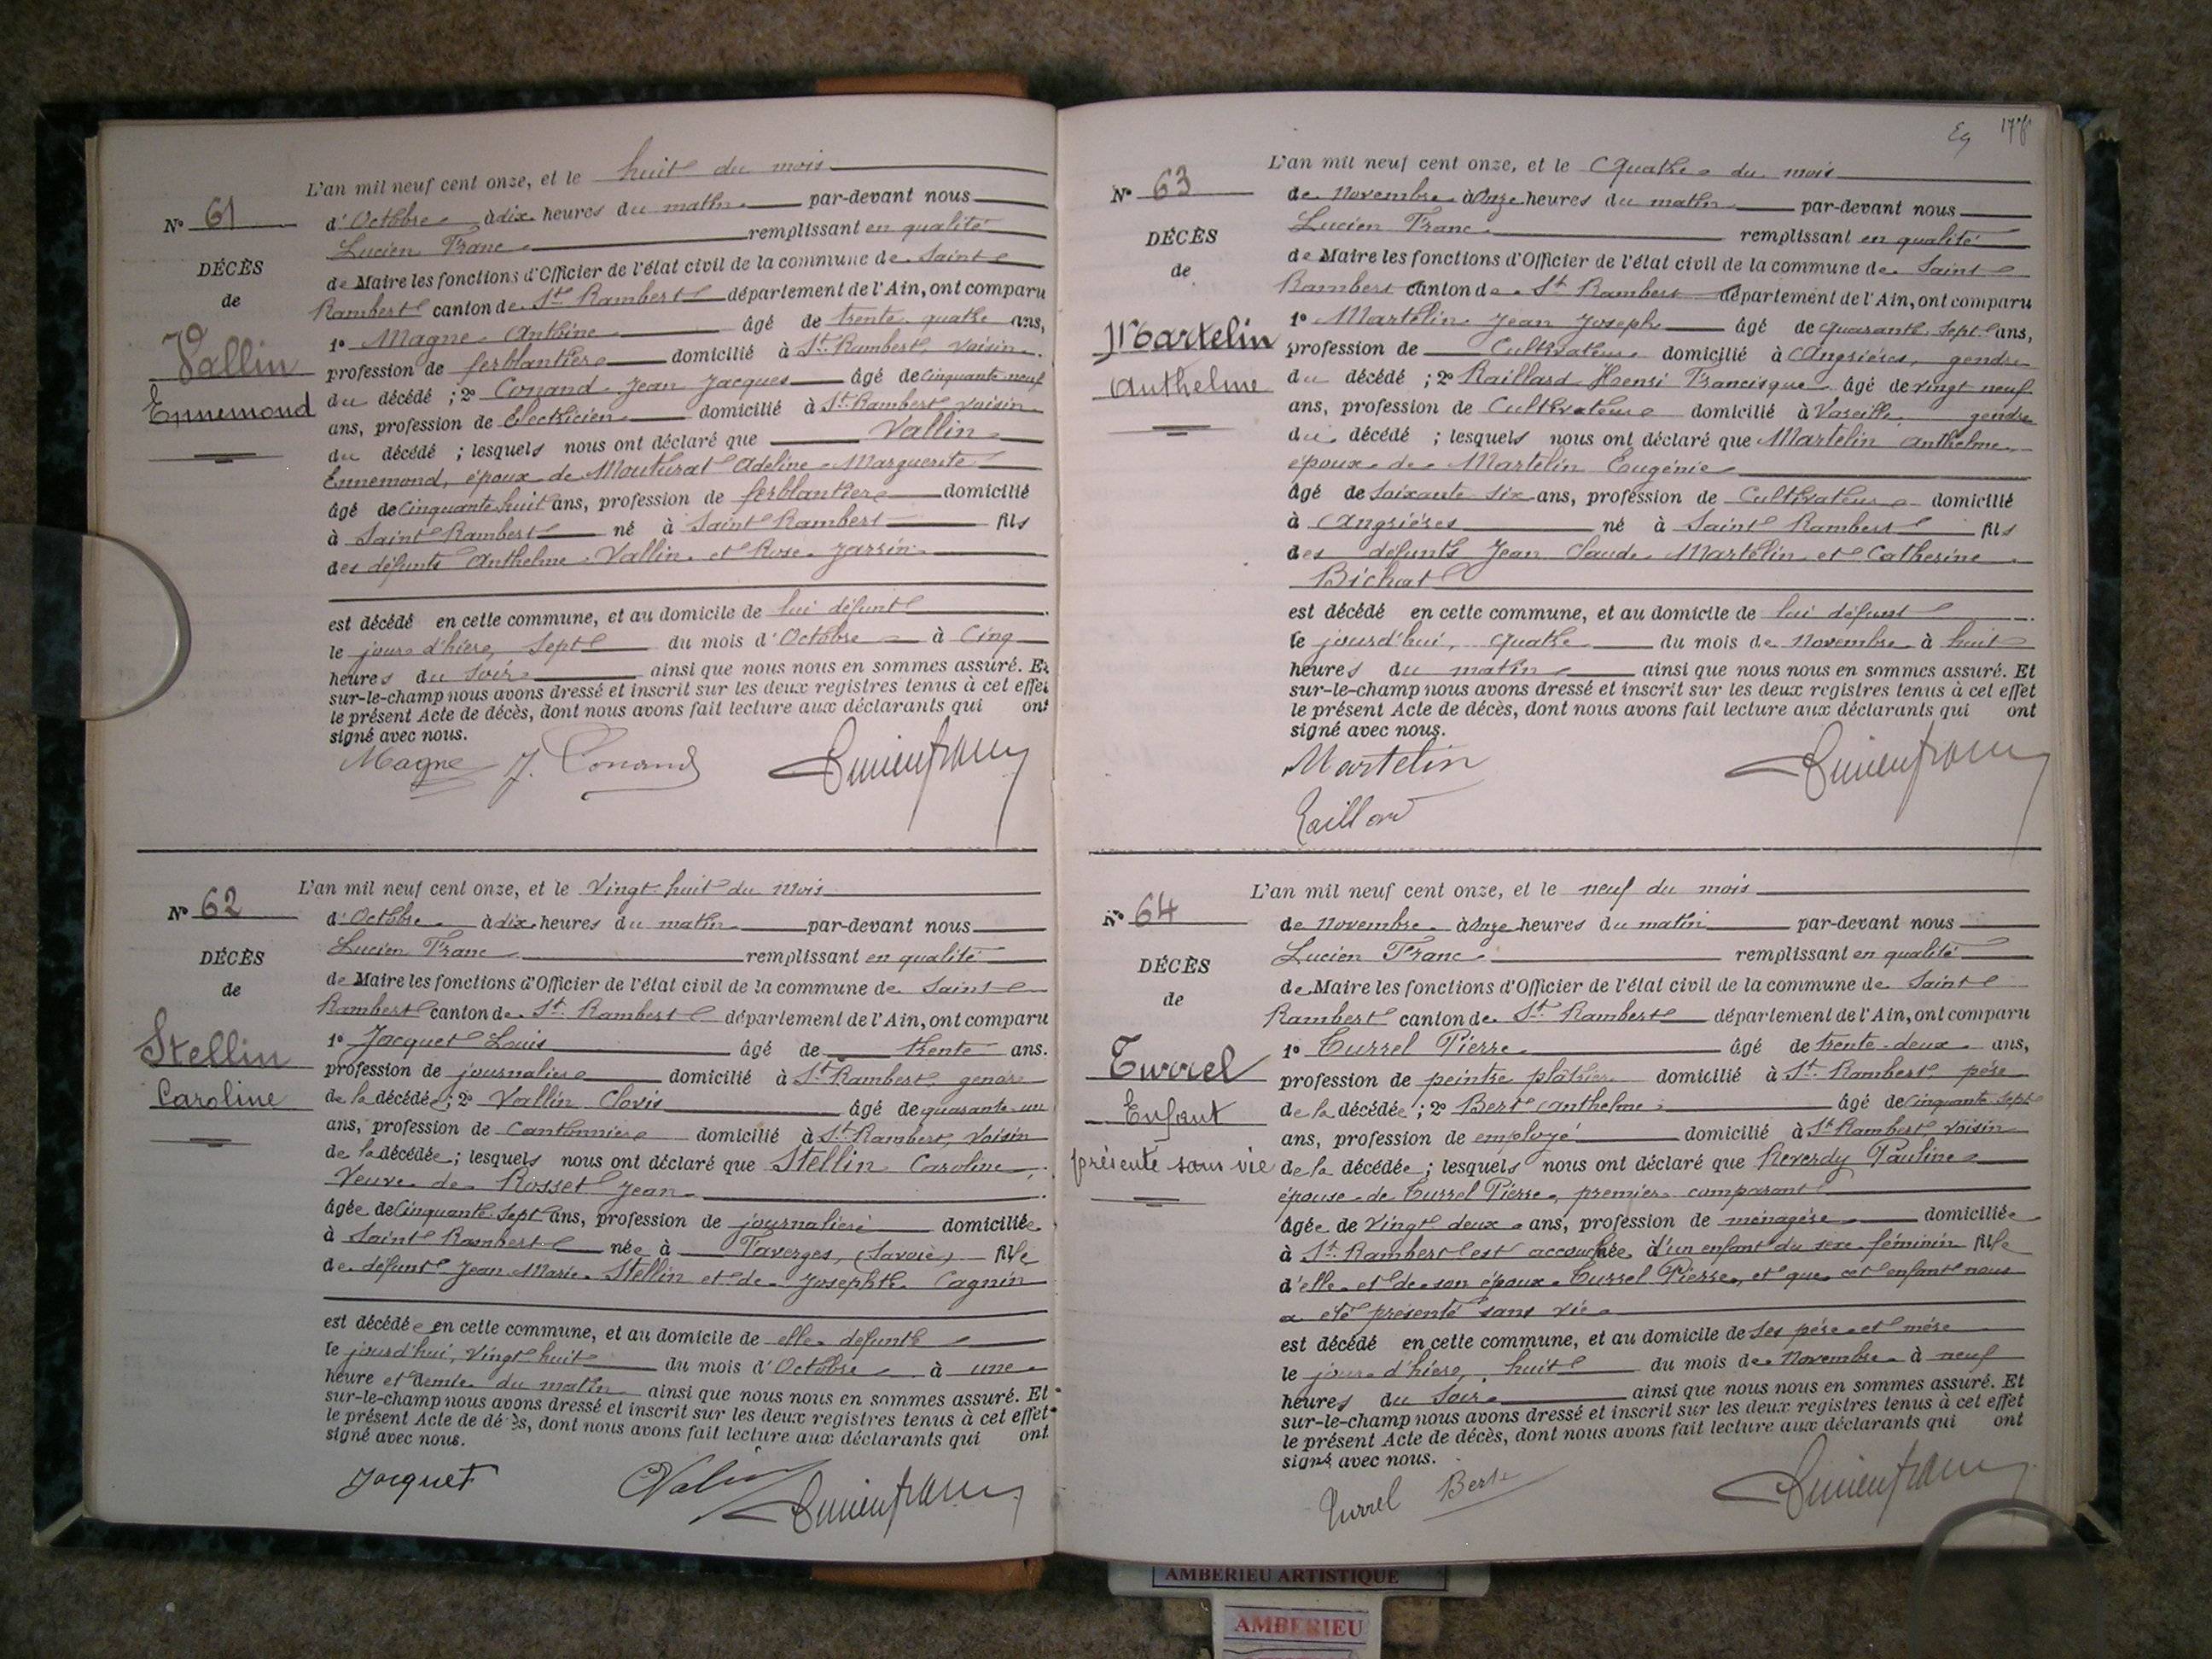 L'an mil neuf cent onze, et le huit du mois
N° 61
d'Octobre à dix heures du matin par-devant nous
Lucien Franc remplissant en qualité
DÉCÈS
de Maire les fonctions d'Officier de l'état civil de la commune de Saint
de
Rambert canton de St Rambert département de l'Ain, ont comparu
Vallin
Ennemond
1° Magne Antoine âgé de trente quatre ans,
profession de ferblantier domicilié à St Rambert, voisin
du décédé ; 2° Conand Jean Jacques âgé de cinquante neuf
ans, profession de électricien domicilié à St Rambert voisin
du décédé ; lesquels nous ont déclaré que Vallin
Ennemond, époux de Adeline Marguerite
âgé de cinquante huit ans, profession de ferblantier domicilié
à Saint Rambert né à Saint Rambert fils
des défunts Anthelme Vallin et Rose Jarrin
est décédé en cette commune, et au domicile de lui défunt
le jour d'hier, sept du mois d'Octobre à cinq
heures du soir ainsi que nous nous en sommes assuré. Et
sur-le-champ nous avons dressé et inscrit sur les deux registres tenus à cet effet
le présent Acte de décès, dont nous avons fait lecture aux déclarants qui ont
signé avec nous.
Magne J. Conand Lucien Franc
L'an mil neuf cent onze, et le vingt huit du mois
N° 62
d'Octobre à dix heures du matin par-devant nous
Lucien Franc remplissant en qualité
DÉCÈS
de Maire les fonctions d'Officier de l'état civil de la commune de Saint
de
Rambert canton de St Rambert département de l'Ain, ont comparu
Stellin
Caroline
1° Jacquet Louis âgé de trente ans.
profession de journalier domicilié à St Rambert, gendre
de la décédée ; 2° Vallin Clovis âgé de quarante un
ans, profession de cantonnier domicilié à St Rambert, voisin
de la décédée ; lesquels nous ont déclaré que Stellin Caroline,
Veuve de Rosset Jean
âgée de cinquante sept ans, profession de journalière domiciliée
à Saint Rambert née à Faverges, (Savoie) fille
de défunt Jean Marie Stellin et de Josephte Cagnin
est décédée en cette commune, et au domicile de elle défunte
le jourd'hui, vingt huit du mois d'Octobre à une
heure et demie du matin ainsi que nous nous en sommes assuré. Et
sur-le-champ nous avons dressé et inscrit sur les deux registres tenus à cet effet
le présent Acte de décès, dont nous avons fait lecture aux déclarants qui ont
signé avec nous.
Jacquet Lucien Franc
L'an mil neuf cent onze, et le Quatre du mois
N° 63
de Novembre à onze heures du matin par-devant nous
Lucien Franc remplissant en qualité
DÉCÈS
de Maire les fonctions d'Officier de l'état civil de la commune de Saint
de
Rambert canton de St Rambert département de l'Ain, ont comparu
Martelin
Anthelme
1° Martelin Jean Joseph âgé de quarante sept ans,
profession de Cultivateur domicilié à Angrières, gendre
du décédé ; 2° Raillard Henri Francisque âgé de vingt neuf
ans, profession de Cultivateur domicilié à Vareille, gendre
du décédé ; lesquels nous ont déclaré que Martelin Anthelme,
époux de Martelin Eugénie
âgé de soixante six ans, profession de Cultivateur domicilié
à Angrières né à Saint Rambert fils
des défunts Jean Claude Martelin et Catherine
Bichat
est décédé en cette commune, et au domicile de lui défunt
le jourd'hui, quatre du mois de Novembre à huit
heures du matin ainsi que nous nous en sommes assuré. Et
sur-le-champ nous avons dressé et inscrit sur les deux registres tenus à cet effet
le présent Acte de décès, dont nous avons fait lecture aux déclarants qui ont
signé avec nous.
Martelin Lucien Franc
Raillard
L'an mil neuf cent onze, et le neuf du mois
N° 64
de Novembre à onze heures du matin par-devant nous
Lucien Franc remplissant en qualité
DÉCÈS
de Maire les fonctions d'Officier de l'état civil de la commune de Saint
de
Rambert canton de St Rambert département de l'Ain, ont comparu
Turrel
Enfant
présenté sans vie
1° Turrel Pierre âgé de trente-deux ans,
profession de peintre plâtrier domicilié à St Rambert, père
de la décédée ; 2° Bert Anthelme âgé de cinquante sept
ans, profession de employé domicilié à St Rambert voisin
de la décédée ; lesquels nous ont déclaré que Reverdy Pauline
épouse de Turrel Pierre, premier comparant
âgée de vingt deux ans, profession de ménagère domiciliée
à St Rambert est accouchée d'un enfant du sexe féminin fille
d'elle et de son époux Turrel Pierre, et que cet enfant nous
a été présenté sans vie
est décédé en cette commune, et au domicile de ses père et mère
le jour d'hier, huit du mois de Novembre à neuf
heures du soir ainsi que nous nous en sommes assuré. Et
sur-le-champ nous avons dressé et inscrit sur les deux registres tenus à cet effet
le présent Acte de décès, dont nous avons fait lecture aux déclarants qui ont
signé avec nous.
Turrel Bert Lucien Franc
AMBERIEU ARTISTIQUE
AMBERIEU